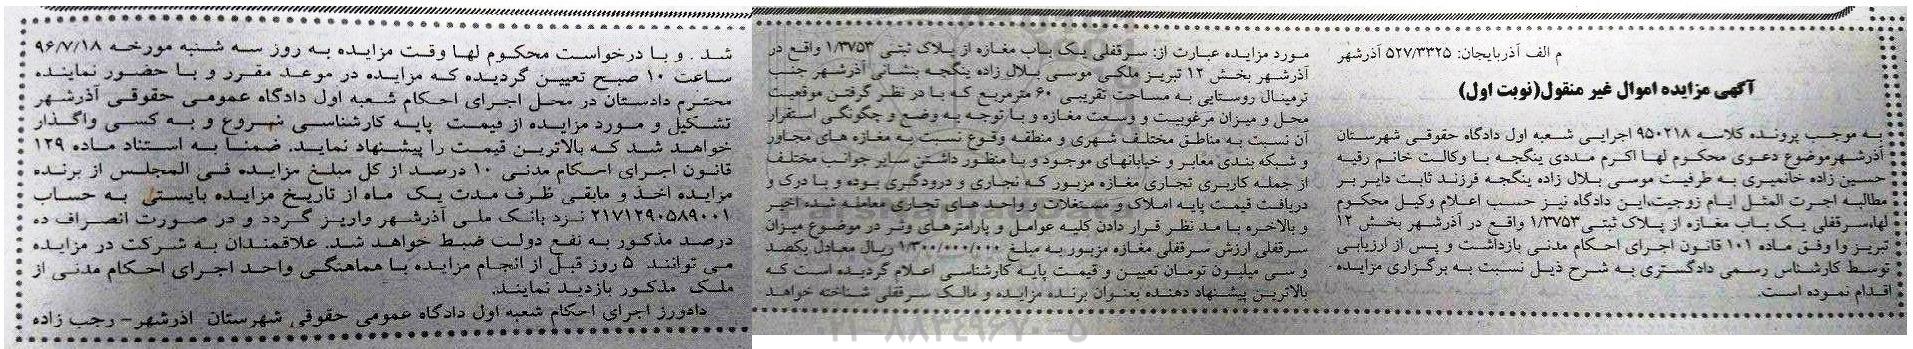 م الف آذربایجان: ۵۲۷/۳۳۲۵ آذرشهر
آگهی مزایده اموال غیر منقول(نوبت اول)
به موجب پرونده کلاسه ۹۵۰۲۱۸ اجرایی شعبه اول دادگاه حقوقی شهرستان
آذرشهرموضوع دعوی محکوم لها اکرم مددی ینگجه با وکالت خانم رقیه
حسین زاده خانمیری به طرفیت موسی بلال زاده ینگجه فرزند ثابت دایر بر
مطالبه اجرت المثل ایام زوجیت،این دادگاه نیز حسب اعلام وکیل محکوم
لهاءسرقفلی یک باب مغازه از پلاک ثبتی ۱/۳۷۵۳ واقع در آذرشهر بخش ۱۲
تبریز را وفق ماده ۱۰۱ قانون اجرای احکام مدنی بازداشت و پس از ارزیابی
توسط کارشناس رسمی دادگستری به شرح ذیل نسبت به برگزاری مزایده
اقدام نموده است.
مورد مزایده عبارت از: سرقفلی یک باب مغازه از پلاک ثبتی ۱/۳۷۵۳ واقع در
آذرشهر بخش ۱۲ تبریز ملکی موسی بلال زاده ینگجه بنشانی آذرشهر جنب
ترمینال روستایی به مساحت تقریبی ۶۰ مترمربع که با در نظر گرفتن موقعیت
محل و میزان مرغوبیت و وسعت مغازه و با توجه به وضع و چگونگی استقرار
آن نسبت به مناطق مختلف شهری و منطقه وقوع نسبت به مغازه های مجاور
و شبکه بندی معابر و خیابانهای موجود و با منظور داشتن سایر جوانب مختلف
از جمله کاربری تجاری مغازه مزبور که نجاری و درودگری بوده و با درک و
دریافت قیمت پایه املاک و مستغلات و واحد های تجاری معامله شده اخیر
و بالاخره با مد نظر قرار دادن کلیه عوامل و پارامترهای وثر در موضوع میزان
سرقفلی ارزش سرقفلی مغازه مزبور به مبلغ ۱/۳۰۰/۰۰۰/۰۰۰ ریال معادل یکصد
و سی میلیون تومان تعیین و قیمت پایه کارشناسی اعلام گردیده است که
بالاترین پیشنهاد دهنده بعنوان برنده مزایده و مالک سرقفلی شناخته خواهد
شد. و با درخواست محکوم لها وقت مزایده به روز سه شنبه مورخه ۹۶/۷/۱۸
ساعت ۱۰ صبح تعیین گردیده که مزایده در موعد مقرر و با حضور نماینده
محترم دادستان در محل اجرای احکام شعبه اول دادگاه عمومی حقوقی آذرشهر
تشکیل و مورد مزایده از قیمت پایه کارشناسی شروع و به کسی واگذار
خواهد شد که بالاترین قیمت را پیشنهاد نماید. ضمنا به استناد ماده ۱۲۹
قانون اجرای احکام مدنی ۱۰ درصد از کل مبلغ مزایده فی المجلس از برنده
مزایده اخذ و مابقی ظرف مدت یک ماه از تاریخ مزایده بایستی به حساب
۲۱۷۱۲۹۰۵۸۹۰۰۱ نزد بانک ملی آذرشهر واریز گردد و در صورت انصراف ده
درصد مذکور به نفع دولت ضبط خواهد شد. علاقمندان به شرکت در مزایده
می توانند ۵ روز قبل از انجام مزایده با هماهنگی واحد اجرای احکام مدنی از
ملک مذکور بازدید نمایند.
دادورز اجرای احکام شعبه اول دادگاه عمومی حقوقی شهرستان اذرشهر- رجب زاده
۲۱-۸۸۳۴۹۶۷۰-۵